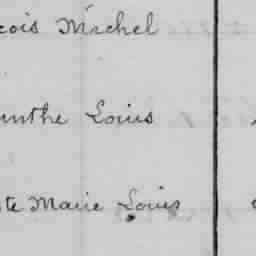 cois Michel
inthe Louis
te Marie Louis